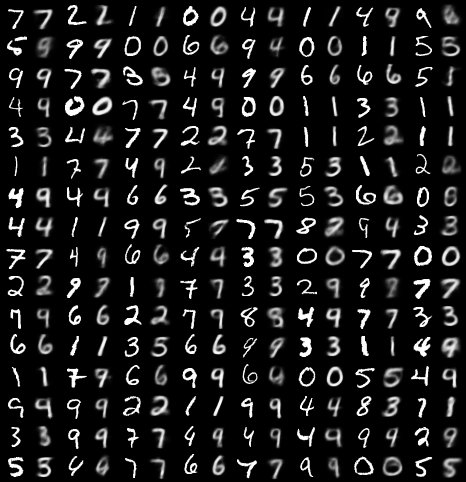 7 7 2 2 1 1 0 0 4 4 1 1 4 9 9
5 9 9 9 0 0 6 6 9 4 0 0 1 1 5 5
9 9 7 7 3 5 4 9 9 9 6 6 6 6 5 1
4 9 0 0 7 7 4 9 0 0 1 1 3 3 1 1
3 3 4 4 7 7 2 2 7 7 1 1 2 2 1 1
1 1 7 7 4 9 2 2 3 3 5 3 1 1 2 2
4 9 4 9 6 6 3 3 5 5 5 3 6 6 0 0
4 4 1 1 9 9 5 7 7 7 8 2 9 4 3 3
7 7 4 9 6 6 4 4 3 3 0 0 7 7 0 0
2 2 9 9 1 9 7 7 3 3 2 9 9 9 7 7
7 9 6 6 2 2 7 9 8 8 4 9 7 7 3 3
6 6 1 1 3 5 6 6 9 9 3 3 1 1 4 9
1 1 7 9 6 6 9 9 6 0 0 5 5 4 9
9 9 9 9 2 2 1 1 9 9 4 4 8 3 7 1
3 3 9 9 7 7 4 9 4 9 4 9 9 4 2 9
5 5 4 6 7 7 6 6 7 7 9 9 0 0 5 5